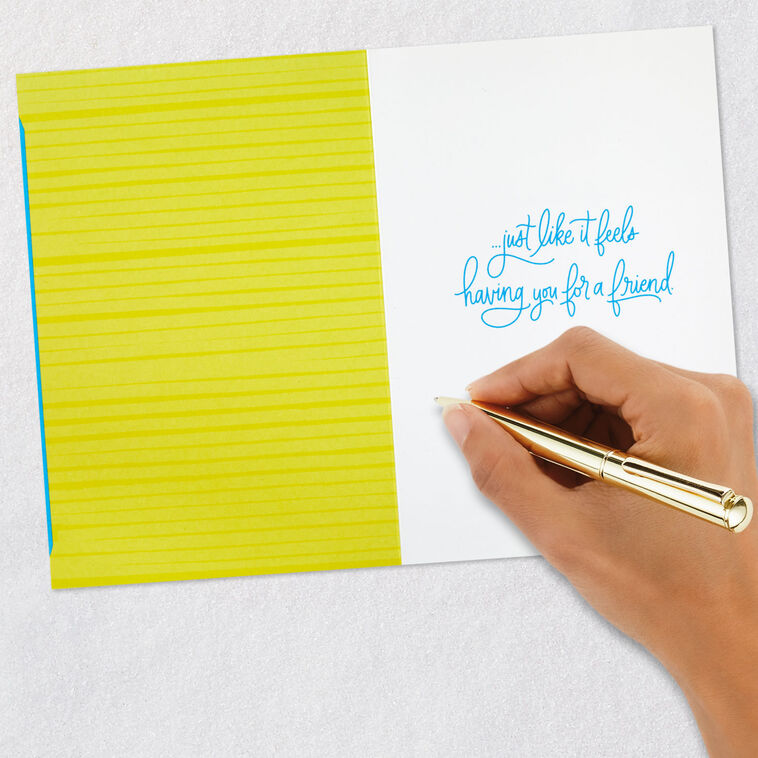 ...just like it feels
having you for a friend.